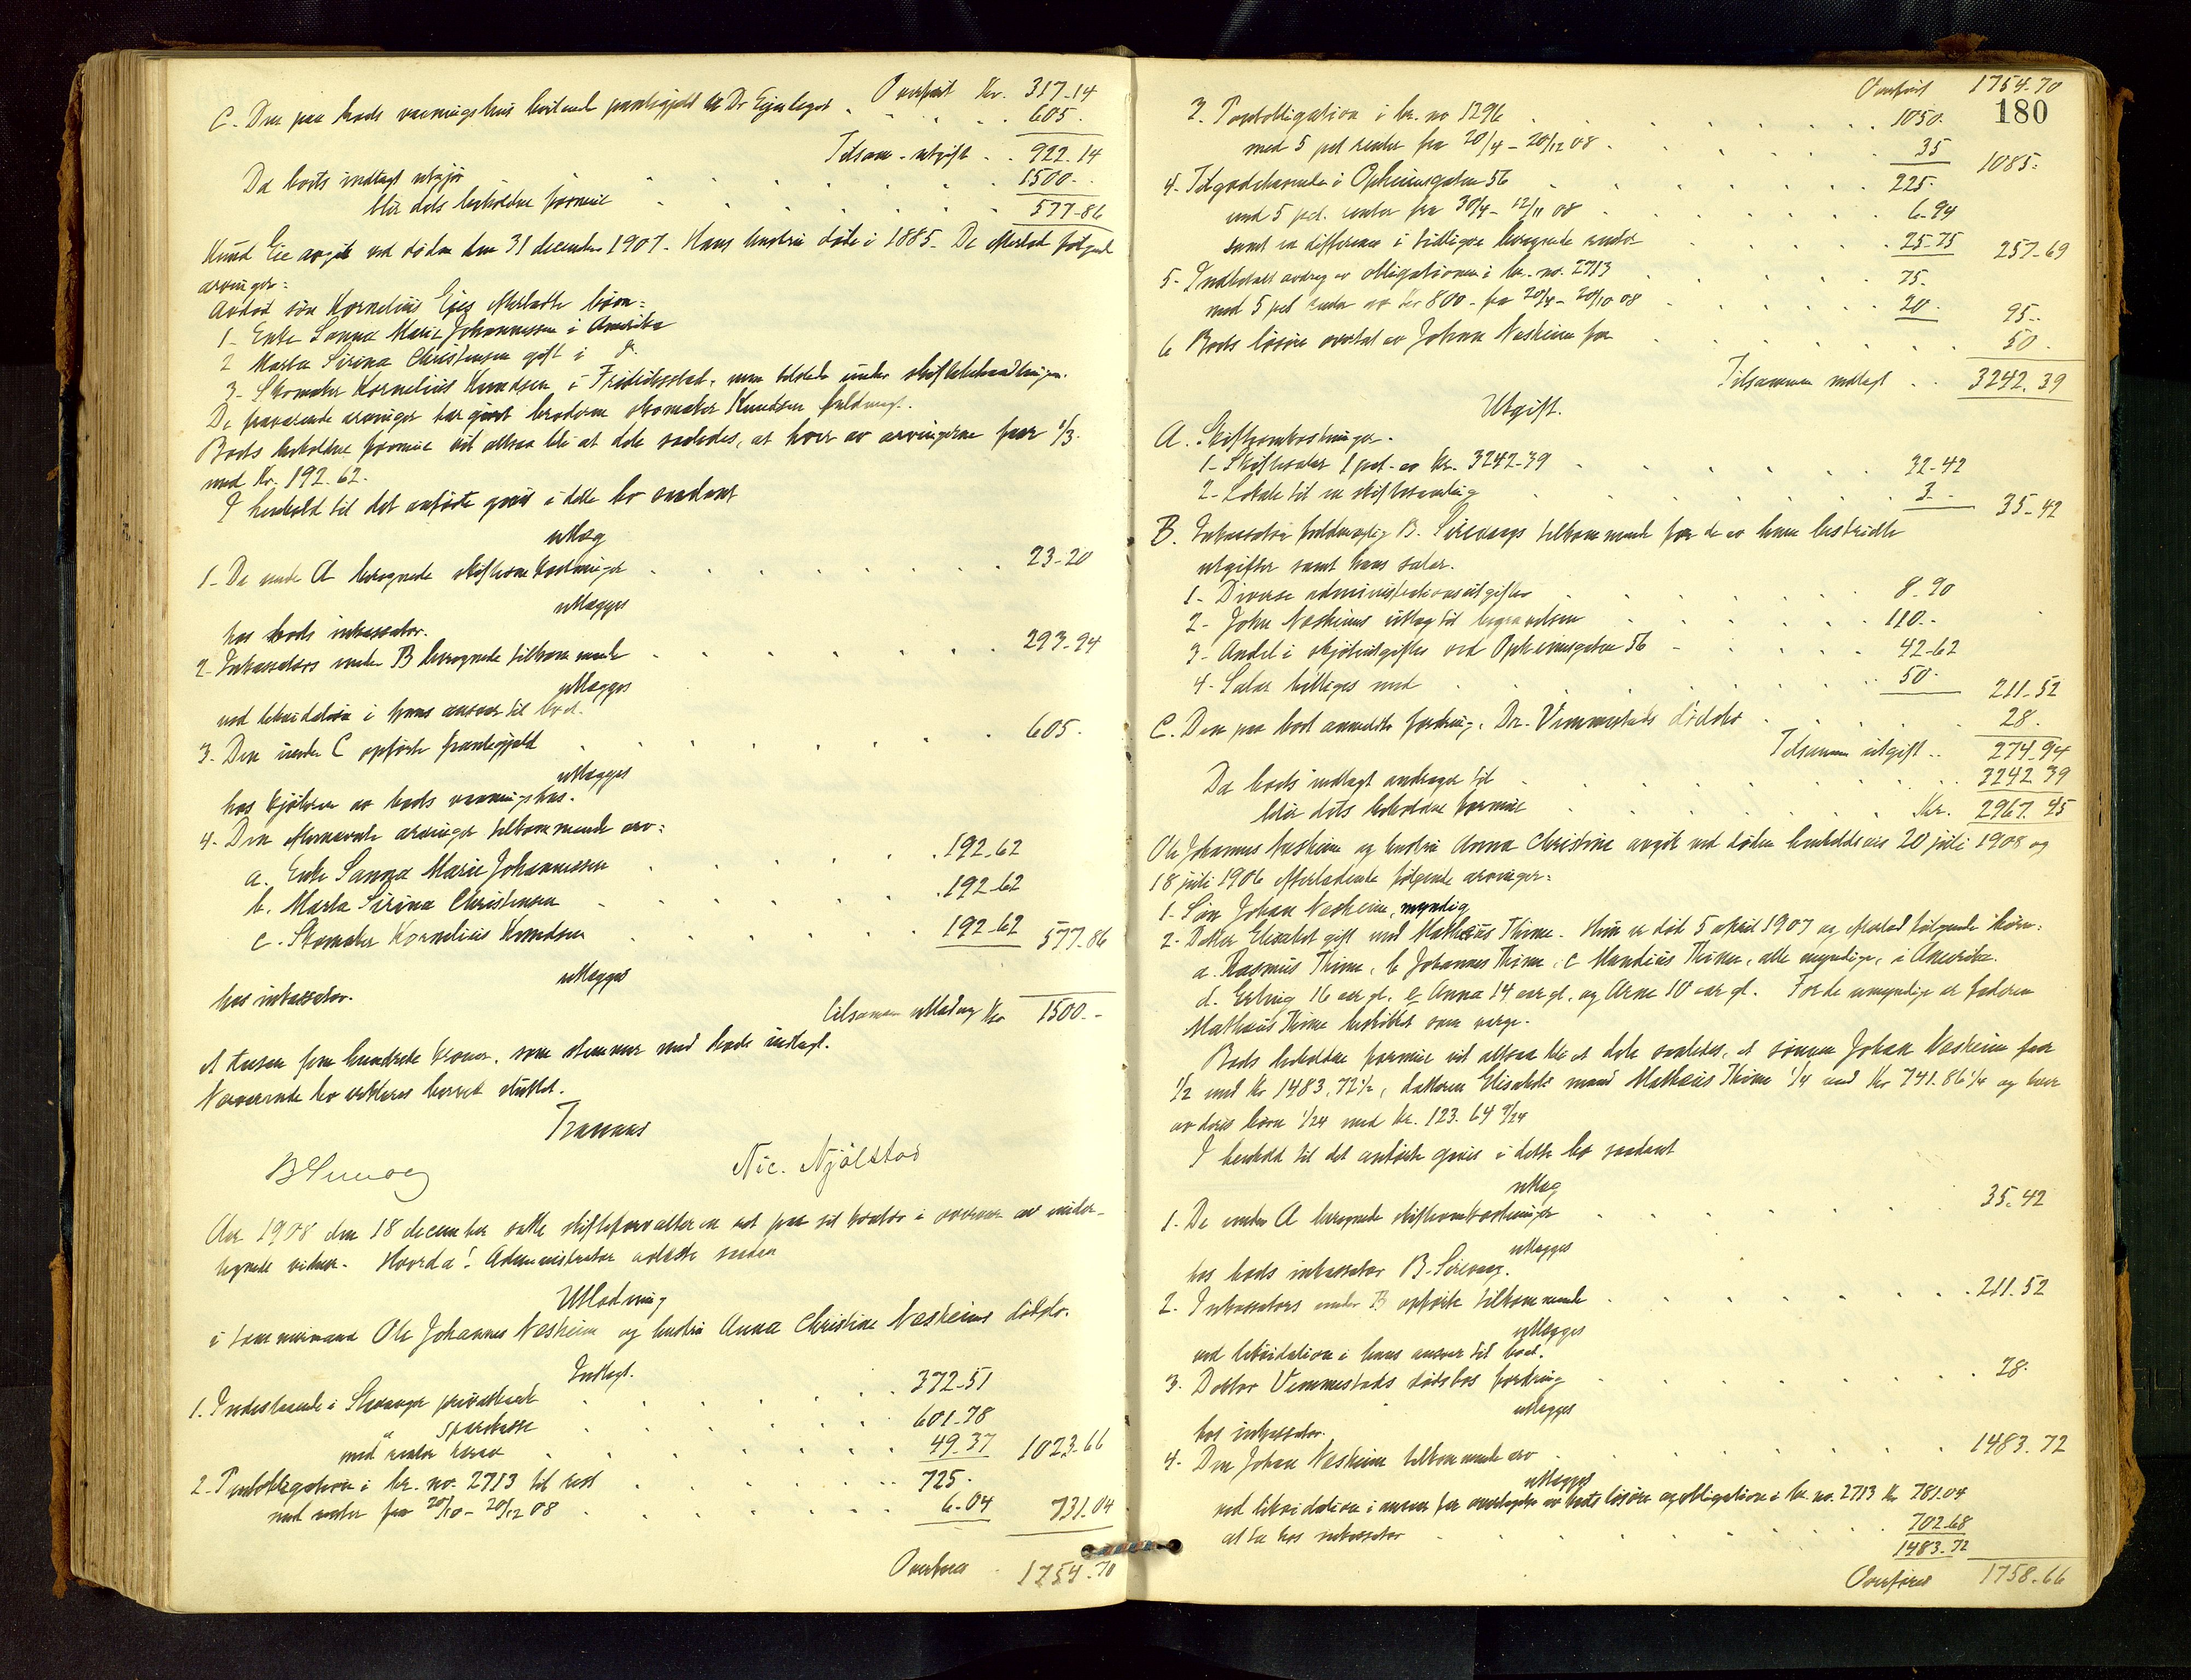 Overført Kr. 317-14
C. Den paa boets vaaningshus heftende pantegjæld til Dr Eyenlegot . . . . 605.
Tilsam. utgift . . 922-14
Da boets indtægt utgjør . . . . 1500-
blir dets beholdne formue . . . . 577-86
Knud Eie avgik ved døden den 31 december 1907. Hans hustru døde i 1885. De efterlod følgende
arvinger:
Avdød søn Kornelius Eies efterlatte børn:
1- Enke Sanna Marie Johannessen i Amerika
2 Marta Sirina Christensen gift i do.
3- Skomaker Kornelius Knudsen i Fredriksstad, som tilstede under skiftebehandlingen.
De fraværende arvinger har givet broderen skomaker Knudsen fuldmagt.
Boets beholdne formue vil altsaa bli at dele saaledes, at hver av arvingerne faar 1/3
med Kr. 192.62.
I henhold til det anførte gives i dette bo saadant
utlæg
1- De under A beregnede skifteomkostninger . . . . 23-20
utlægges
hos boets inkassator.
2- Inkassators under B beregnede tilkommende . . . . 293-94
utlægges
ved likvidation i hans ansvar til boet.
3. Den under C opførte pantegjæld . . . . 605.
utlægges
hos kjøperen av boets vaaningshus.
4. Den efternævnte arvinger tilkommende arv:
a. Enke Sanna Marie Johannessen . . . . 192-62
b. Marta Sirina Christensen . . . . 192-62
c. Skomaker Kornelius Knudsen . . . . 192-62 577-86
utlægges
hos inkassator.
tilsammen utlodning Kr 1500.-
et tusen fem hundrede kroner, som stemmer med boets indtægt.
Nærværende bo erklæres herved sluttet.
Tranaas
BSirevaag Nic. Njølstad
Aar 1908 den 18 december satte skifteforvalteren ret paa sit kontor i overvær av under-
tegnede vidner. Hvorda! Administrator avlaste saadan
Utlodning
i tømmermand Ole Johannes Næsheim og hustru Anna Christine Næsheims dødsbo.
Indtægt.
1. Indestaaende i Stavanger privatbank . . . . 372-51
" sparekasse . . . . 601-78
med renter herav . . . . 49-37 1023-66
2- Pantobligation i br. no. 2713 til rest . . . . 725.
med renter fra 20/10 - 20/12 08 . . . . 6-04 731.04
Overføres . 1754.70
Overført 1754.70
180
3. Pantobligation i br. no 1296 . . . . 1050.
med 5 pct renter fra 20/4 - 20/12 08 . . . . 35 1085.
4- Tilgodehavende i Opheimsgaten 56 . . . . 225.
med 5 pct. renter fra 30/4 - 12/11 08 . . . . 6-94
samt en difference i tidligere beregnede renter . . . . 25-75 257-69
5- Indbetalt avdrag av obligationen i br. no. 2713 . . . . 75.
med 5 pct renter av Kr 800- fra 20/4 - 20/10 08 . . . . 20. 95-
6 Boets løsøre overtat av Johan Næsheim for . . . . 50.
Tilsammen indtægt . . 3242.39
Utgift.
A. Skifteomkostninger.
1- Skiftesalær 1 pct. av Kr. 3242-39 . . . . 32-42
2- Lokale til en skiftesamling . . . . 3- 35-42
B. Inkassator fuldmægtig B. Sirevaags tilkommende for de av ham bestridte
utgifter samt hans salær.
1- Diverse administrationsutgifter . . . . 8-90
2- Johan Næsheims utlæg til begravelsen . . . . 110.-
3- Andel i skjøteutgifter ved Opheimsgaten 56 . . . . 42-62
4- Salær billiges med . . . . 50. 211-52
C. Den paa boet anmeldte fordring, Dr. Vimmestads dødsbo . . . . 28.
Tilsammen utgift . . 274-94
Da boets indtægt andrager til . . . . 3242.39
blir dets beholdne formue . . . . Kr. 2967.45
Ole Johannes Næsheim og hustru Anna Christine avgik ved døden henholdsvis 20 juli 1908 og
18 juli 1906 efterladende følgende arvinger:
1- Søn Johan Næsheim, myndig
2- Datter Elisabet gift med Mathæus Thime. Hun er død 5 april 1907 og efterlod følgende børn:
a. Rasmus Thime, b Johannes Thime, c Mandius Thime, alle myndige, i Amerika.
d. Erling 16 aar gl. e Anna 14 aar gl. og Arne 10 aar gl. For de umyndige er faderen
Mathæus Thime beskikket som verge.
Boets beholdne formue vil altsaa bli at dele saaledes, at sønnen Johan Næsheim faar
1/2 med Kr 1483.72 1/2, datteren Elisabets mand Mathæus Thime 1/4 med Kr 741.86 1/4 og hver
av deres børn 1/24 med Kr. 123.64 9/24
I henhold til det anførte gives i dette bo saadant
utlæg
1. De under A beregnede skifteomkostninger . . . . 35.42
utlægges
hos boets inkassator B. Sirevaag.
2. Inkassators under B opførte tilkommende . . . . 211.52
utlægges
ved likvidation i hans ansvar til boet.
3. Doktor Vimmestads dødsbos fordring . . . . 28.
utlægges
hos inkassator.
4. Den Johan Næsheim tilkommende arv . . . . 1483.72
utlægges
ved likvidation i ansvar for overtagelse av boets løsøre og obligation i br. no. 2713 Kr 781.04
at ta hos inkassator . . . . 702.68
1483-72
Overføres 1758.66